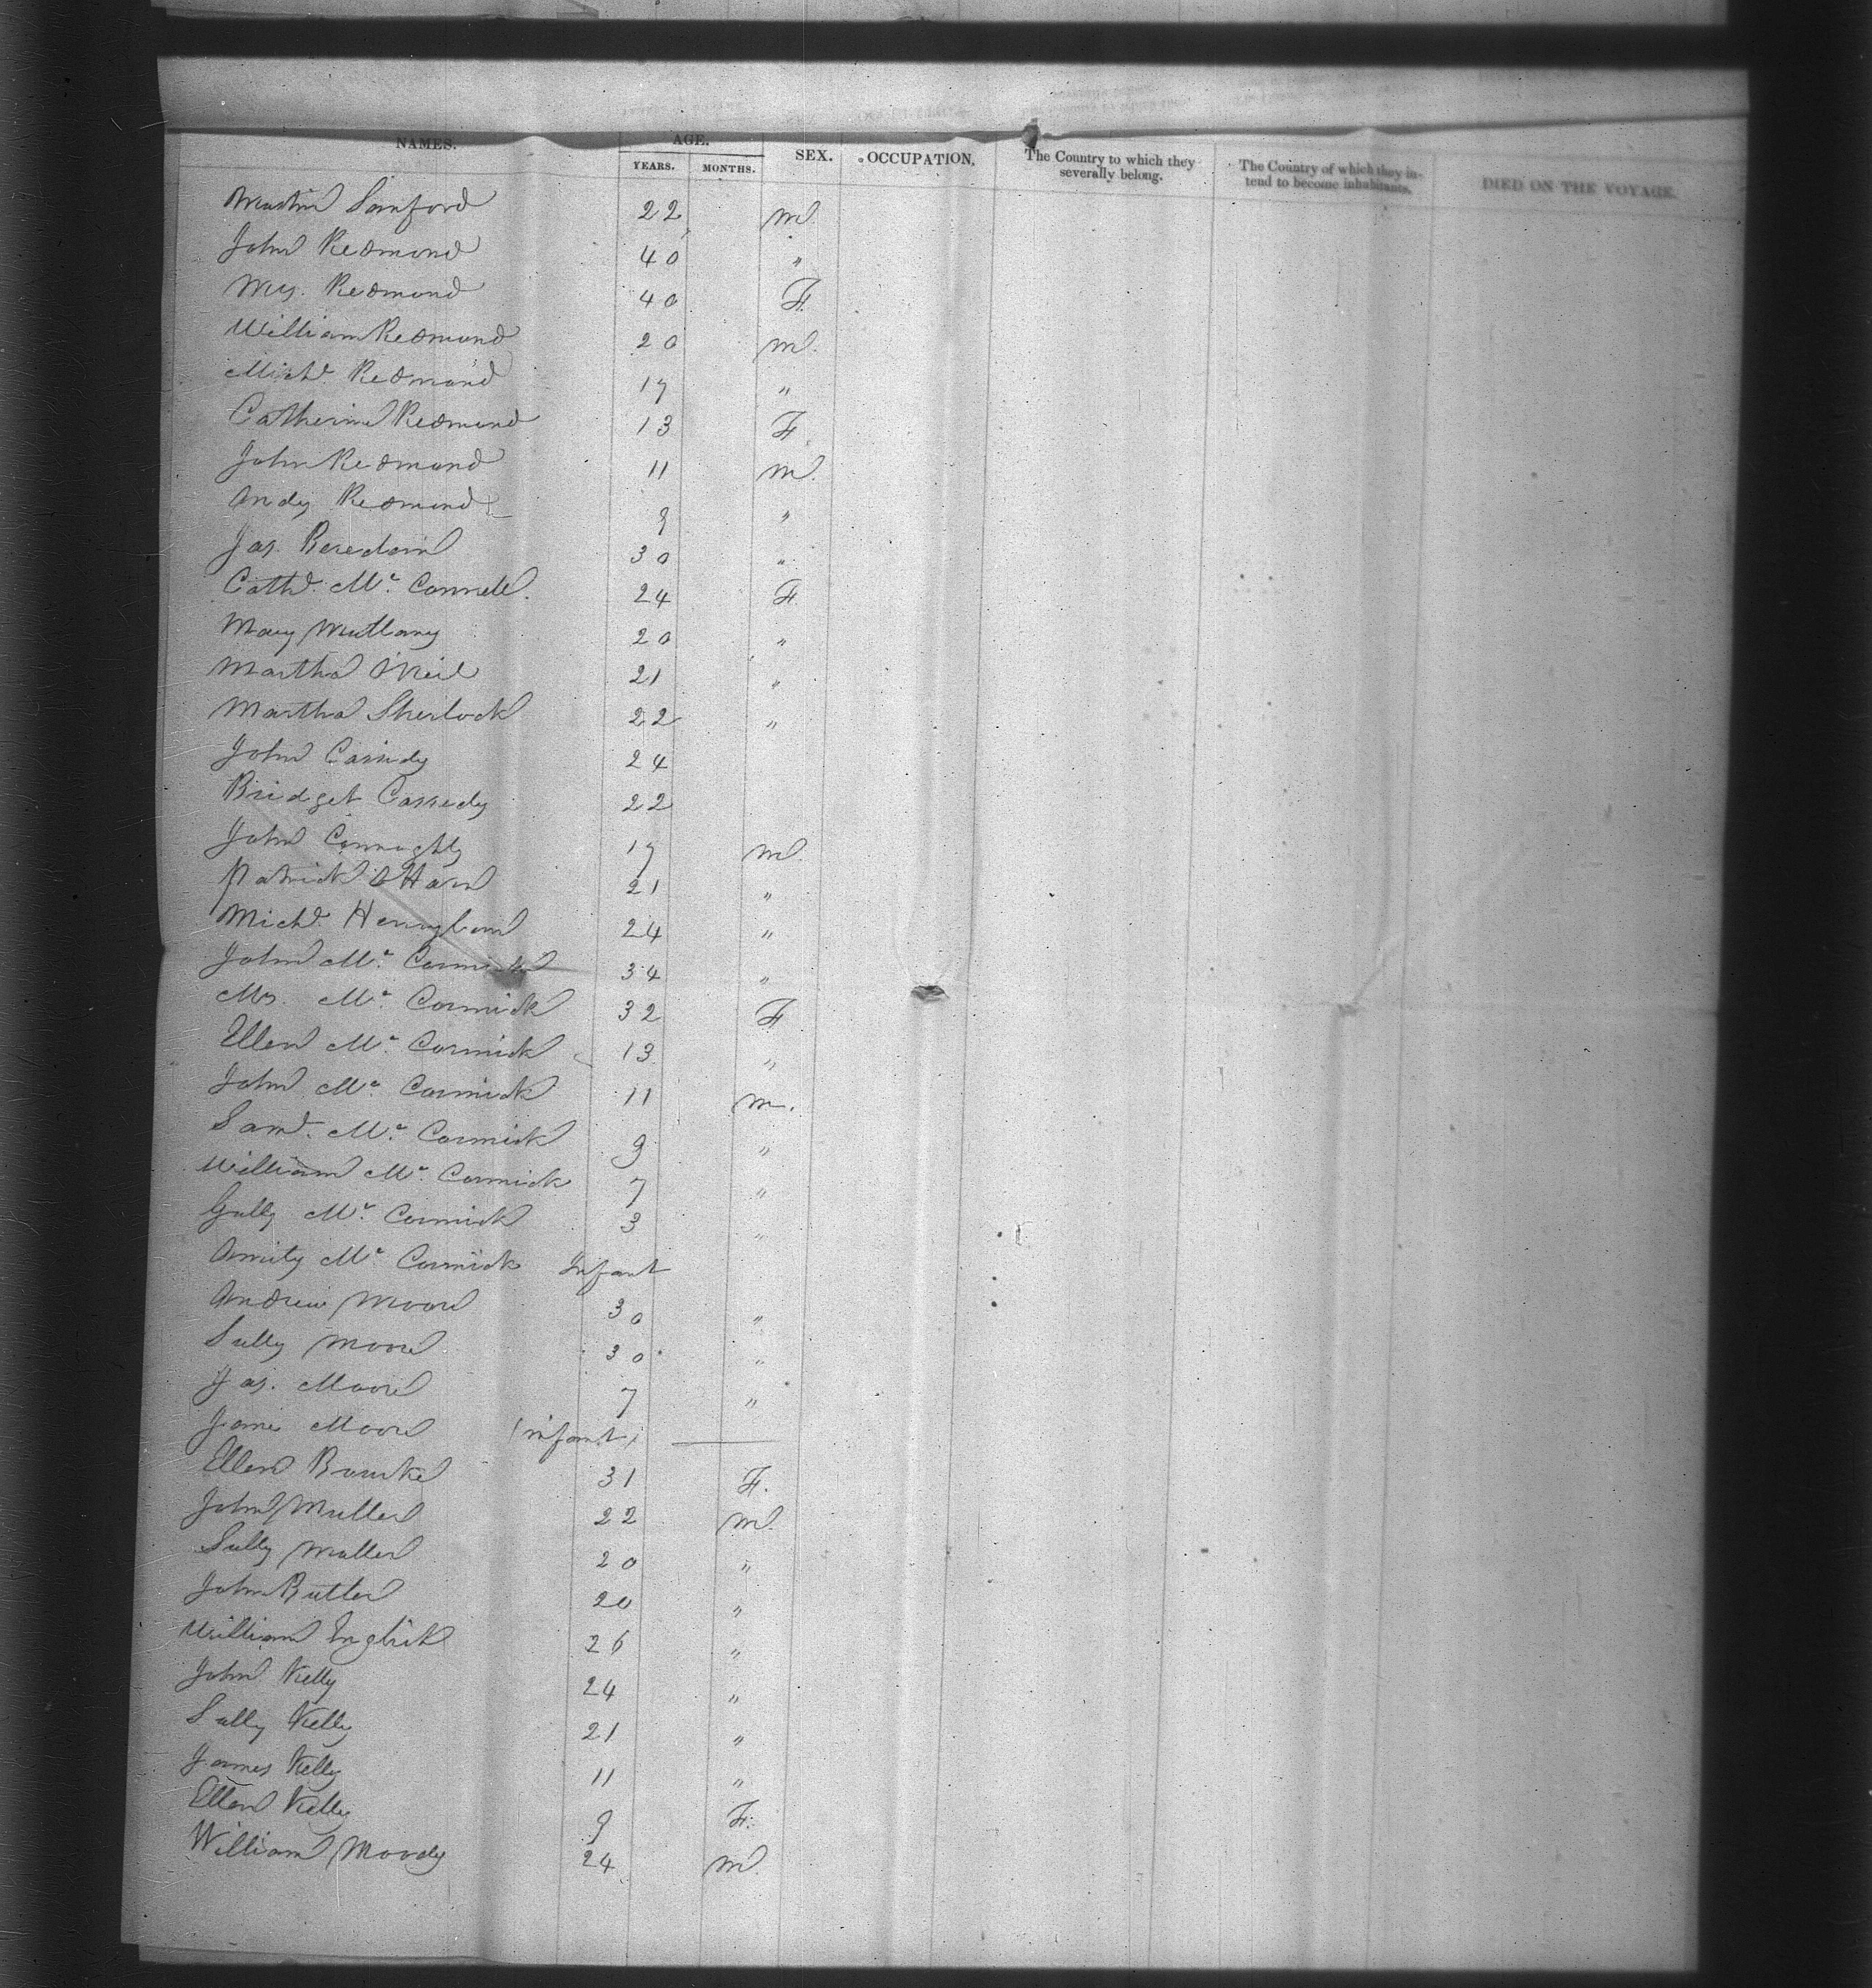 NAMES. AGE. SEX. OCCUPATION. The Country to which they severally belong. The Country of which they intend to become inhabitants. DIED ON THE VOYAGE.
YEARS. MONTHS.
Martin Sanford 22 M.
John Redmond 40 "
Mrs. Redmond 40 F.
William Redmond 20 M.
Michl. Redmond 17 "
Catherine Redmond 13 F.
John Redmond 11 M.
Andy Redmond 9 "
Jas. 30 "
Cathe. Mc. Connell. 24 F.
Mary Mullany 20 "
Martha O'Neil 21 "
Martha Sherlock 22 "
John Cassidy 24
Bridget Cassedy 22
John 17 M.
Patrick O'Hara 21 "
Michl. 24 "
John Mc. Cormick 34 "
Mrs. Mc. Cormick 32 F
Ellen Mc. Cormick 13 "
John Mc. Cormick 11 M.
Saml. Mc. Cormick 9 "
William Mc. Cormick 7 "
Mc. Cormick 3 "
Mc. Cormick Infant
Andrew Moore 30 "
Sally Moore 30 "
Jas. Moore 7 "
Jane Moore (infant)
Ellen Bourke 31 F.
John Muller 22 M.
Sally Muller 20 "
John Butler 20 "
William English 26 "
John Kelly 24 "
Sally Kelly 21 "
James Kelly 11 "
Ellen Kelly 9 F.
William Moody 24 M.